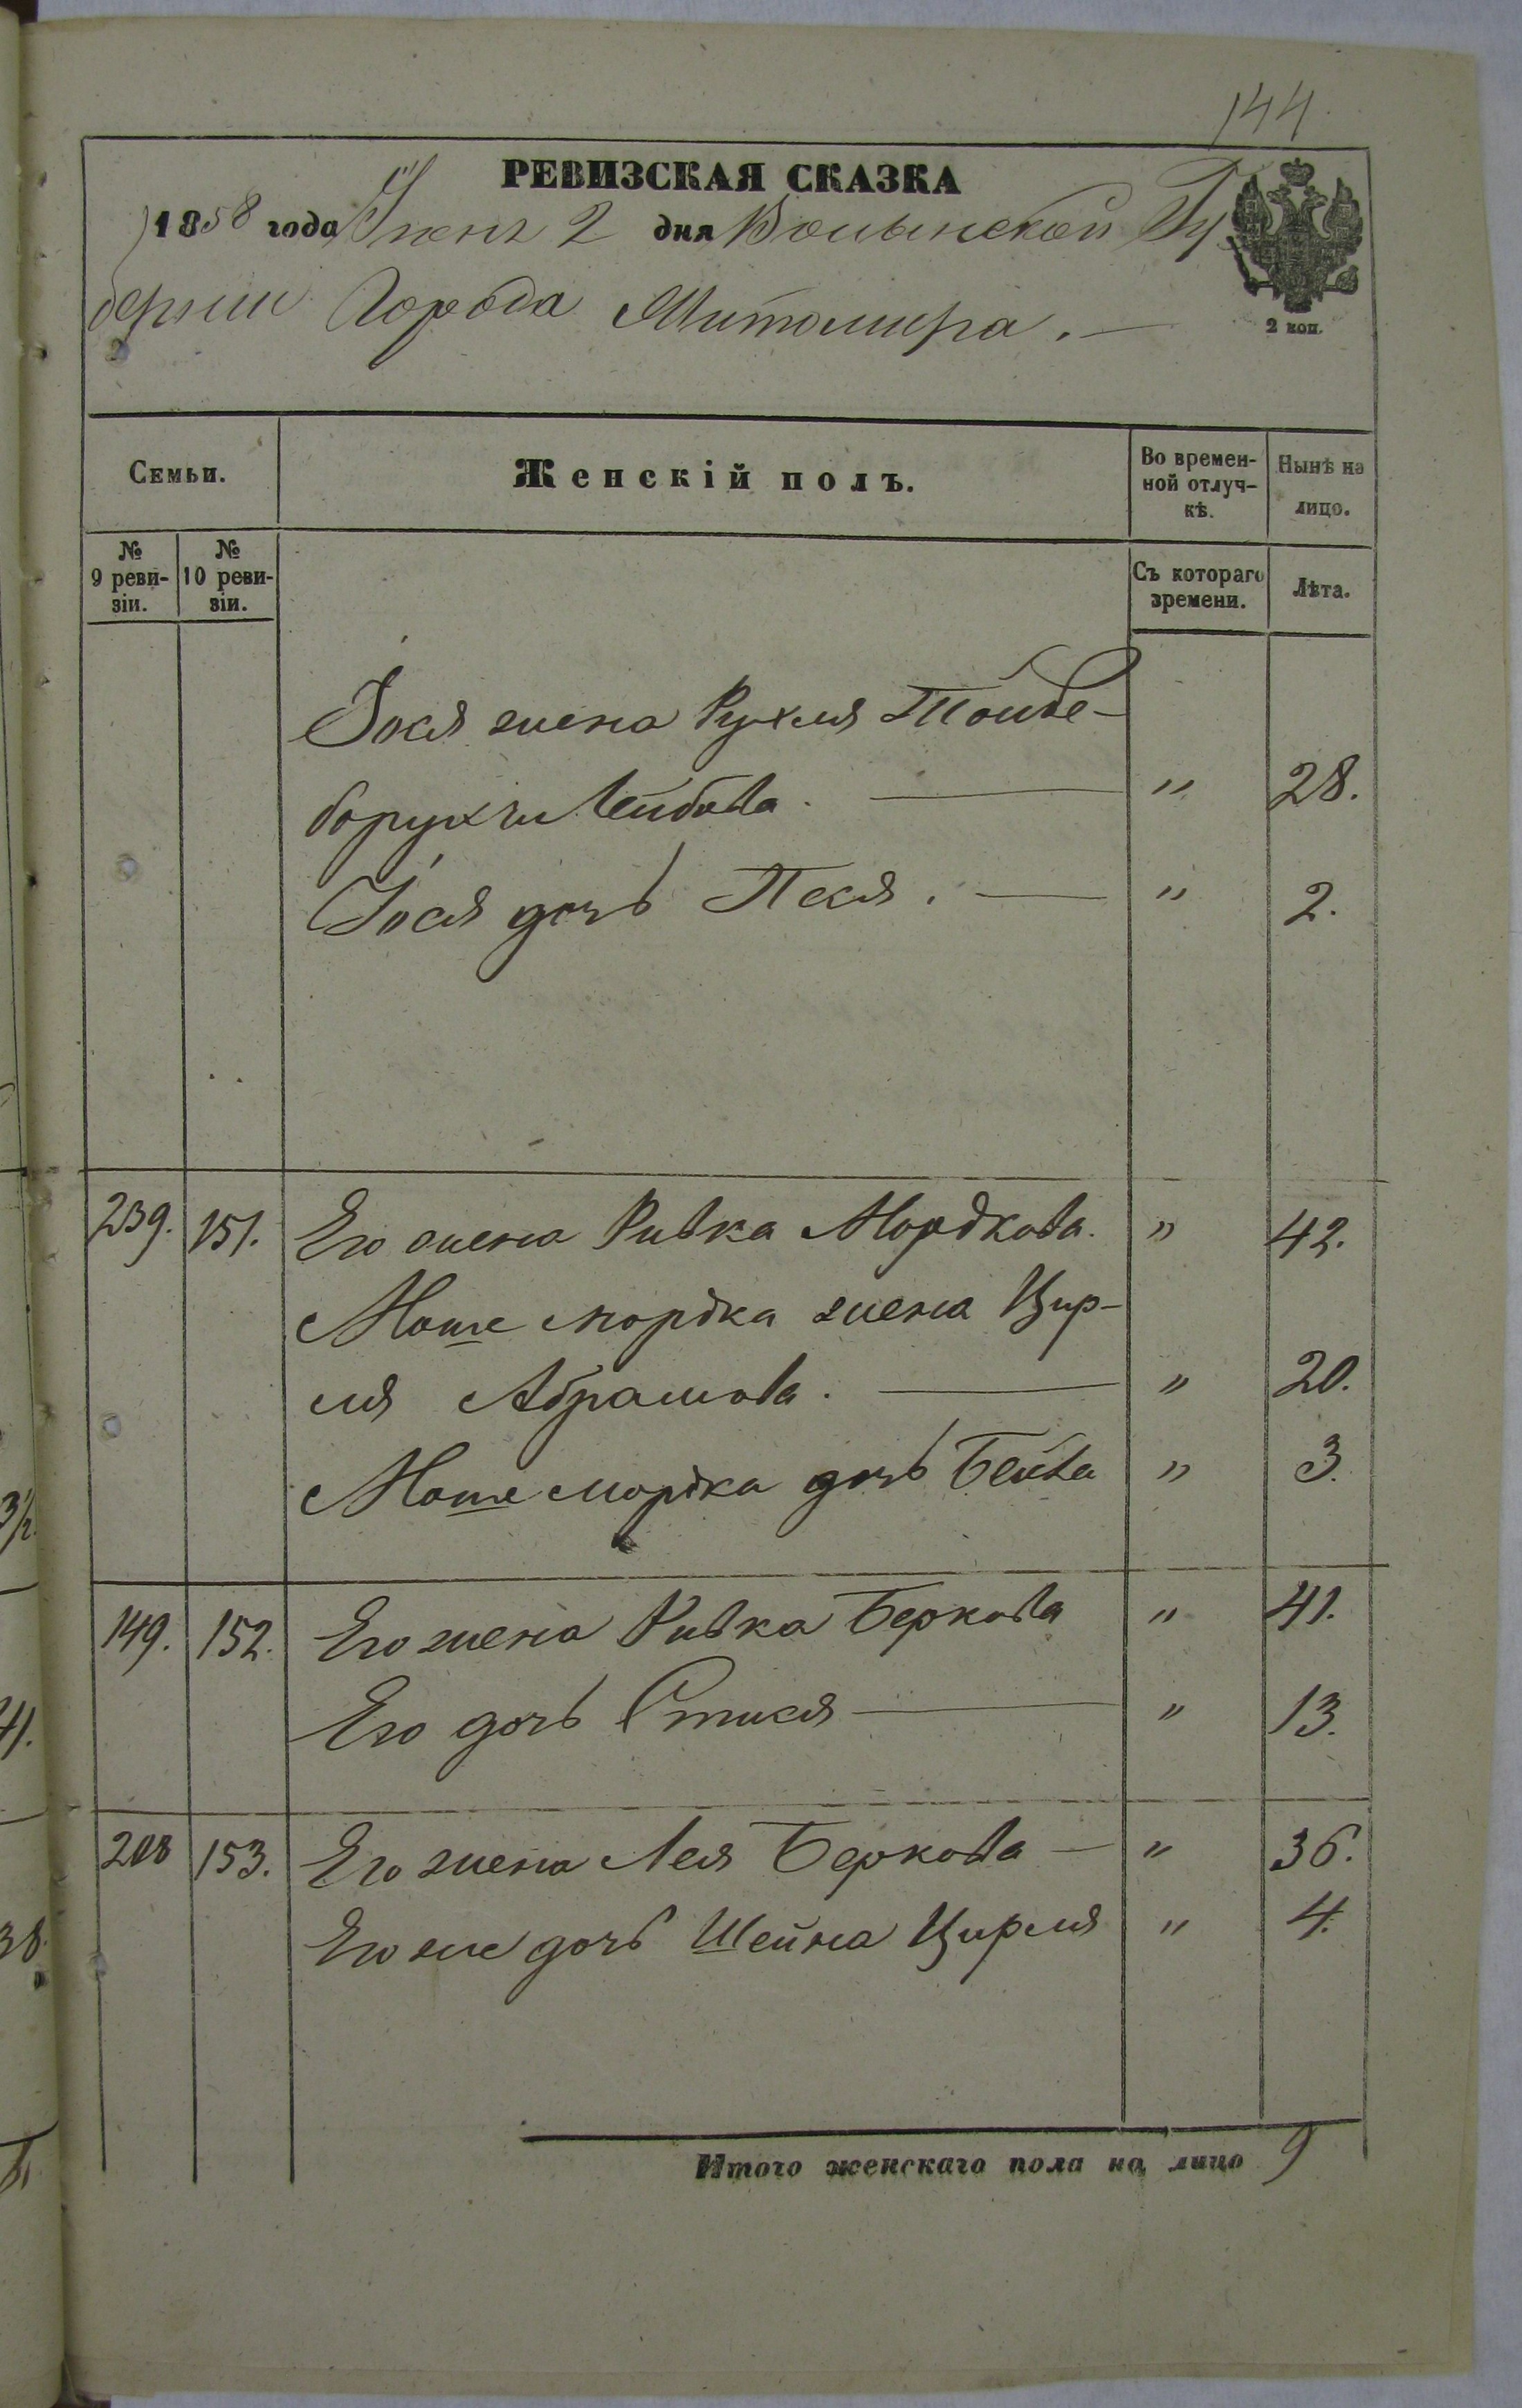 144.
РЕВИЗСКАЯ СКАЗКА
1858 года Іюня 2 дня Волынской Гу
берніи Города Житомира. —
2 коп.
Семьи. Женскій полъ. Во времен-
ной отлуч-
кѣ. Нынѣ на
лицо.
№
9 реви-
зіи. №
10 реви-
зіи. Съ котораго
времени. Лѣта.
Іося жена Рухля
Лейбова. — " 28.
Іося дочь Песя. — " 2.
239. 151. Его жена Ривка Мордкова. " 42.
Моше мордка жена Цир-
ля Абрамова. — " 20.
Моше мордка дочь Бейла " 3.
149. 152. Его жена Ривка Беркова " 41.
Его дочь — " 13.
208 153. Его жена Лея Беркова — " 36.
Его же дочь Шейна Цирля " 4.
Итого женскаго пола на лицо 9